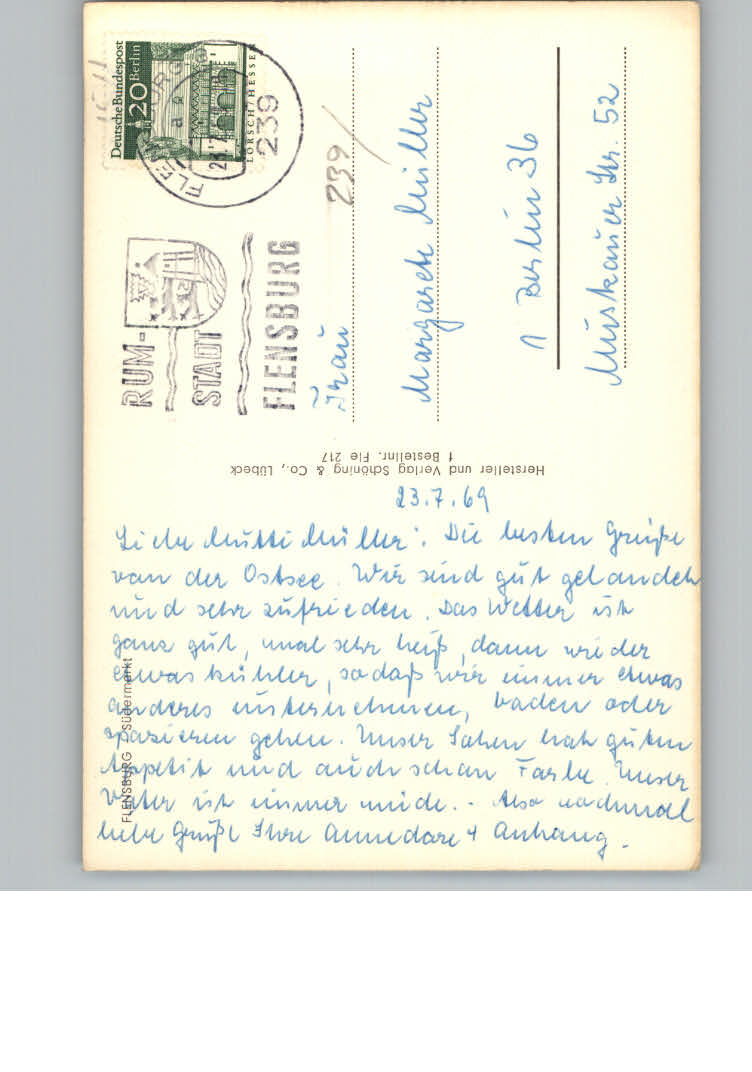 Deutsche Bundespost
20 Berlin
LORSCH/HESSEN
FLENSBURG
239
RUM-
STADT
FLENSBURG
239/
Frau
Margarete Müller
1 Berlin 36
Muskauer Str. 52
Hersteller und Verlag Schöning & Co., Lübeck
f Bestellnr. Fle 217
FLENSBURG Südermarkt
23.7.69
Liebe Mutti Müller! Die besten Grüße
von der Ostsee. Wir sind gut gelandet
und sehr zufrieden. Das Wetter ist
ganz gut, mal sehr heiß, dann wieder
etwas kühler, sodaß wir immer etwas
anderes unternehmen, baden oder
spazieren gehen. Unser hat guten
Appetit und auch schon Farbe. Unser
Vater ist immer müde. - Also nochmal
liebe Grüße Ihre Annedore + Anhang.